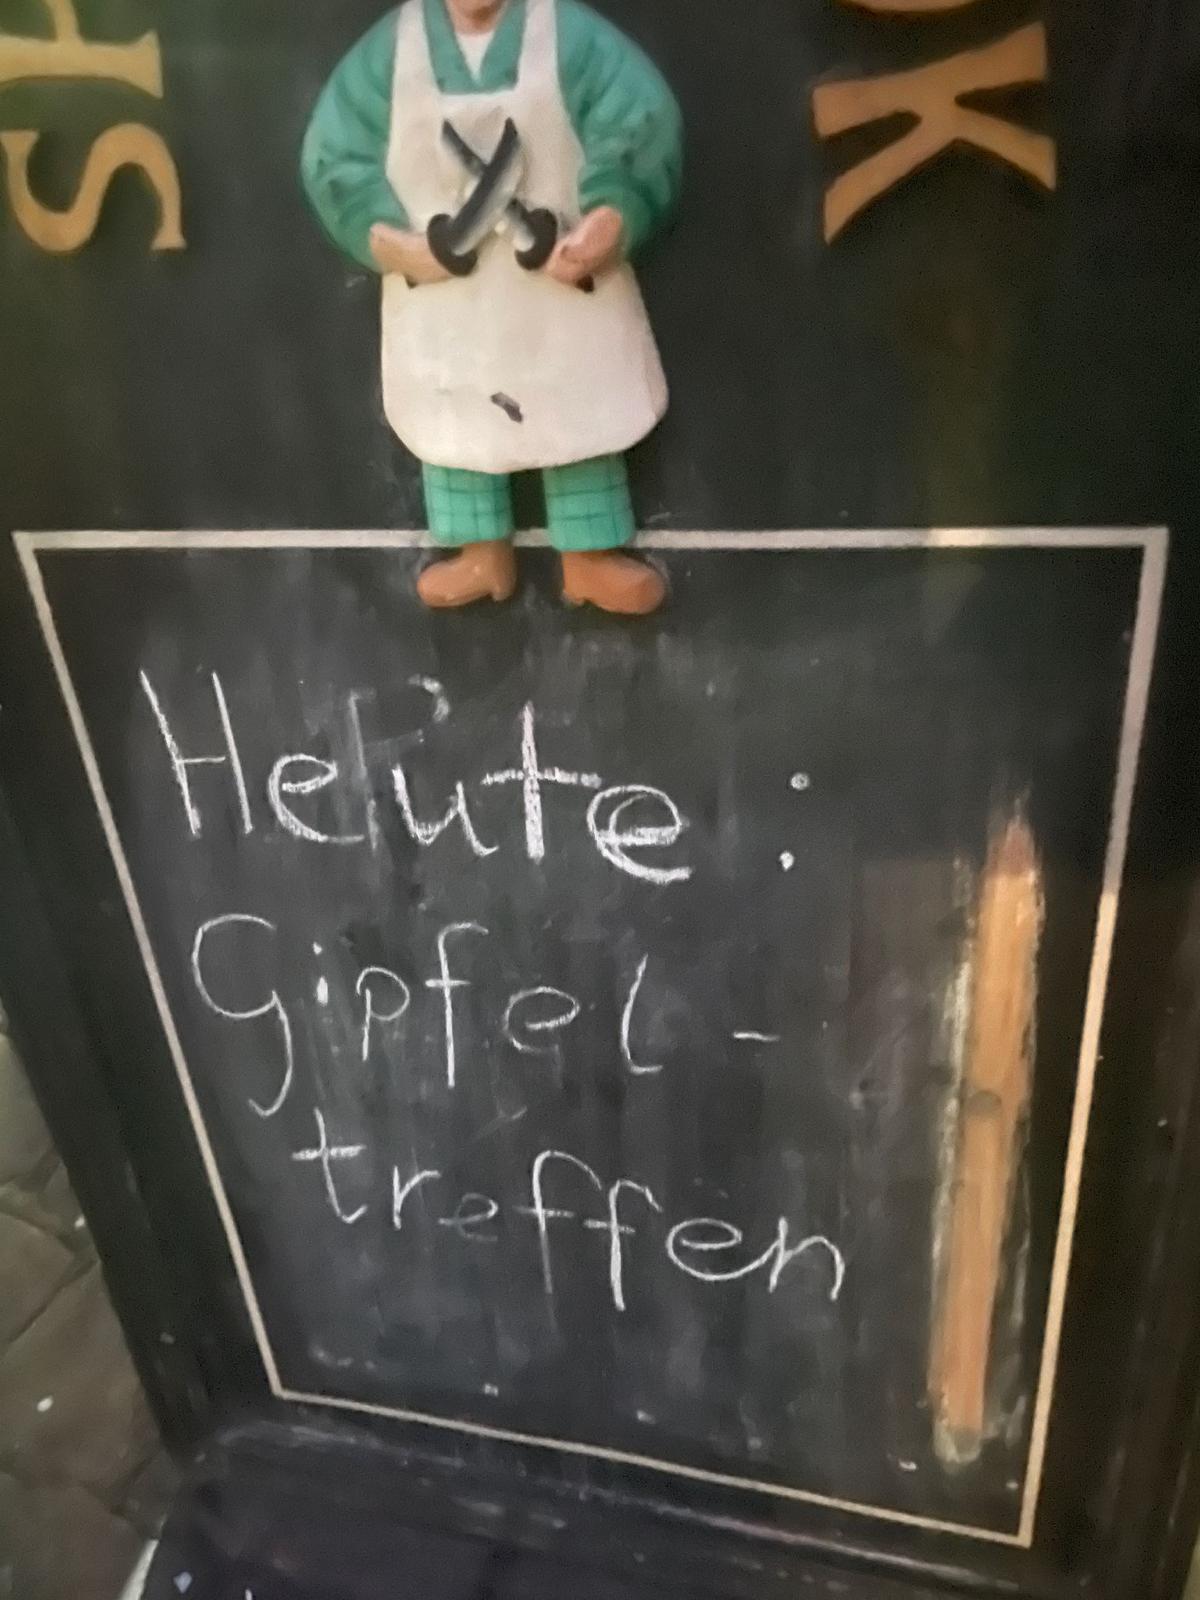 HS
OK
Heute :
Gipfel -
treffen